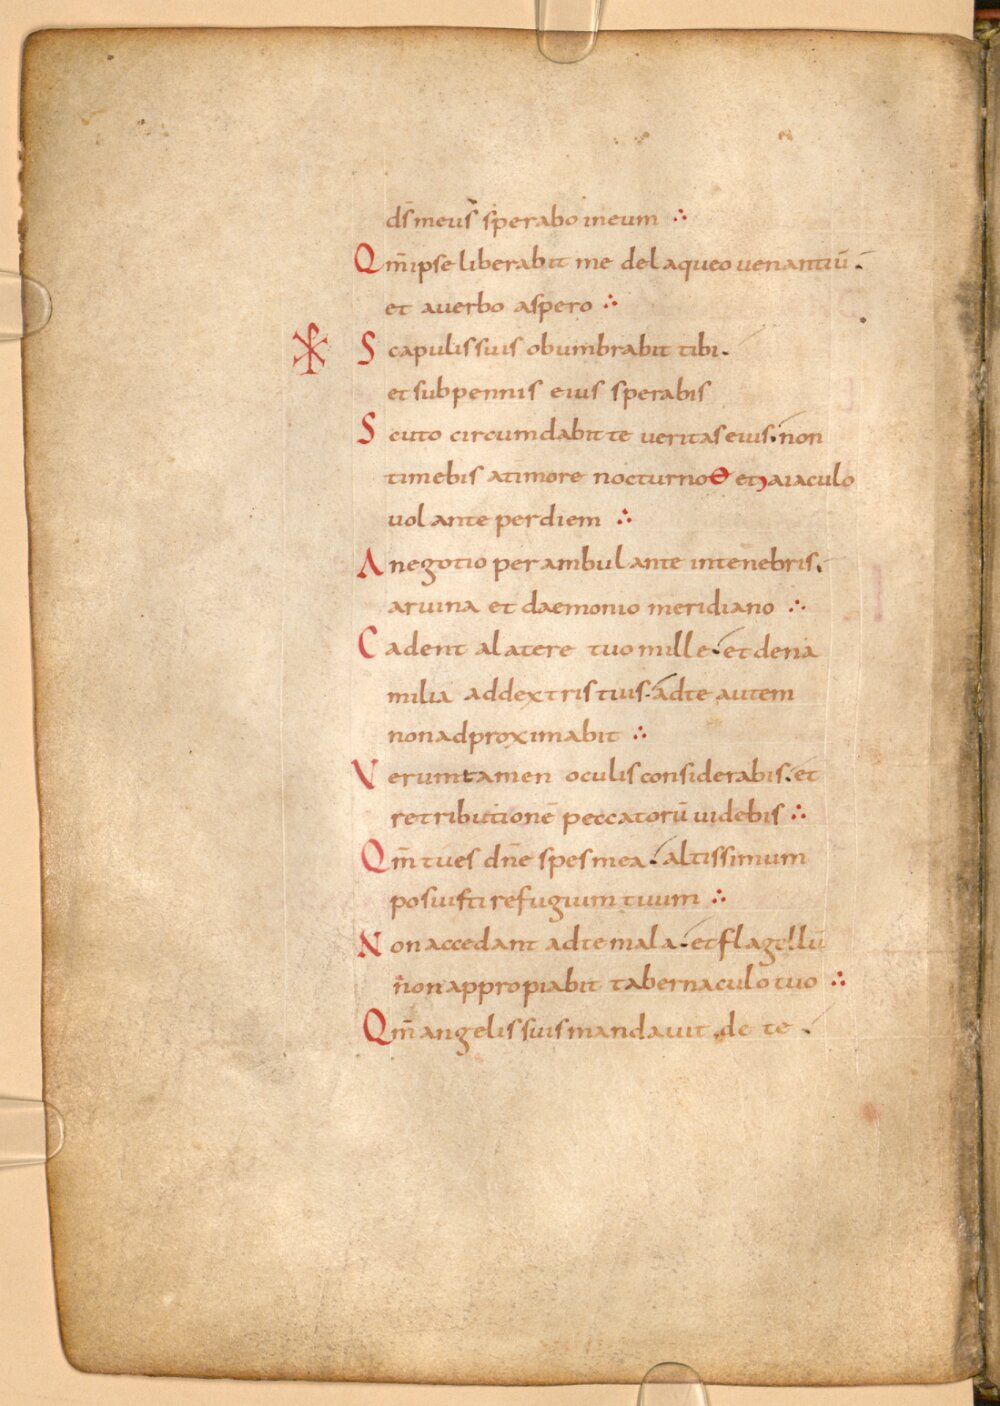 ds̄ meus sperabo in eum ∴
Qm̄ ipse liberabit me de laqueo venantiū.
et a uerbo aspero ∴
⳩ Scapulis suis obumbrabit tibi.
et sub pennis eius sperabis
Scuto circumdabit te ueritas eius. non
timebis a timore nocturno Θ et a iaculo
uolante per diem ∴
A negotio perambulante in tenebris.
a ruina et daemonio meridiano ∴
Cadent a latere tuo mille. et dena
milia ad dextris tuis. ad te autem
non adproximabit ∴
Verumtamen oculis considerabis. et
retributionē peccatorū uidebis ∴
Qm̄ tu es dn̄e spes mea. altissimum
posuisti refugium tuum ∴
Non accedant ad te mala. et flagellū
non appropiabit tabernaculo tuo ∴
Qm̄ angelis suis mandauit de te .